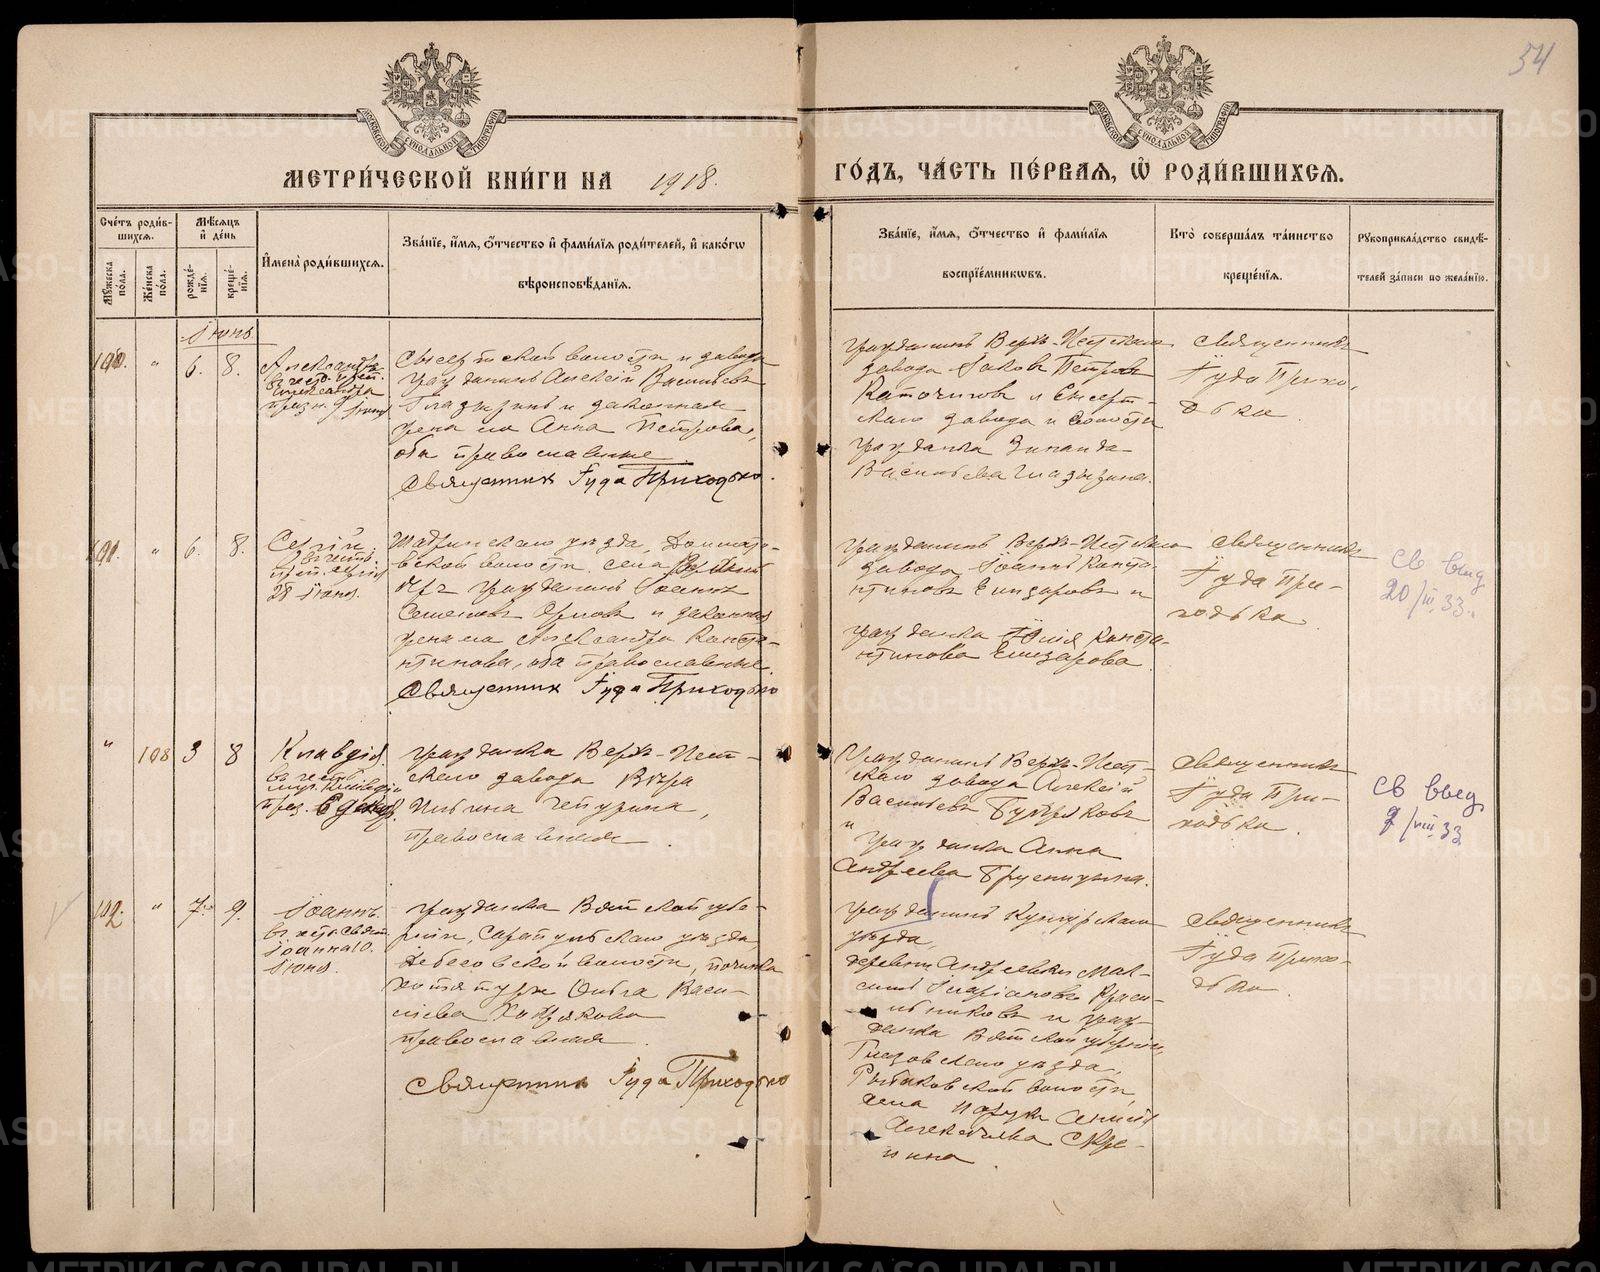 54
МЕТРИ́ЧЕСКОЙ КНИ́ГИ НА 1918.
ГО́ДЪ, ЧА́СТЬ ПЕ́РВАЯ, Ѡ҆ РОДИ́ВШИХСЯ.
Сче́тъ роди́в-
шихся.
Мѣ́сяцъ
и҆ де́нь
Му́жеска по́ла.
Же́нска по́ла.
рожде́нїя.
креще́нїя.
И҆мена̀ роди́вшихся.
Зва́нїе, и҆́мя, ѻ҆́тчество и҆ фами́лїя роди́телей, и҆ како́гѡ
вѣроисповѣ́данїя.
Зва́нїе, и҆́мя, ѻ҆́тчество и҆ фами́лїя
воспрїе́мниковъ.
Кто̀ соверша́лъ та́инство
креще́нїя.
Рукоприкла́дство свидѣ́-
телей за́писи по жела́нїю.
Іюнь
190. " 6. 8.
Александръ
Александра
Сысертской волости и завода
гражданинъ Алексѣй Васильевъ
Глазыринъ и законная
жена его Анна Петрова,
оба православные
Священник Іуда Приходько.
гражданинъ Верхъ-Исетскаго
завода Іаковъ Петровъ
и Сысерт-
скаго завода и волости
гражданка Зинаида
Васильева Глазырина.
Священникъ
Іуда Прихо-
дько
191. " 6. 8.
Сергій
въ честь
преп. Сергія
28 Іюня.
Шадринскаго уѣзда,
вской волости, села
гражданинъ Іоаннъ
Семеновъ Орловъ и законная
жена его Александра Конста-
нтинова, оба православные
Священник Іуда Приходько
гражданинъ Верхъ-Исетскаго
завода Іоаннъ Конста-
нтиновъ Елизаровъ и
гражданка Юлія Конста-
нтинова Елизарова.
Священникъ
Іуда При-
ходько
св выд
20/III 33.
" 108 3 8
Клавдія.
въ честь
гражданка Верхъ-Исет-
скаго завода Вѣра
Ильина Чепурина,
православная.
Гражданинъ Верхъ-Исет-
скаго завода Алексѣй
Васильевъ
и
гражданка Анна
Андреева Брусницына.
Священникъ
Іуда При-
ходько.
св выд
9/VIII 33
192. " 7. 9.
Іоаннъ.
Іюня.
гражданка Вятской губе-
рніи, Сарапульскаго уѣзда,
Дебесовской волости, починка
Ольга Васи-
льева Хохрякова
православная.
Священник Іуда Приходько
гражданинъ Кунгурскаго
уѣзда,
деревни Андреевки Мак-
симъ Иларіоновъ Краси-
льниковъ и граж-
данка Вятской губерніи,
Глазовскаго уѣзда,
волости,
села
Алексѣева
Священникъ
Іуда Прихо-
дько.
METRIKI.GASO-URAL.RU